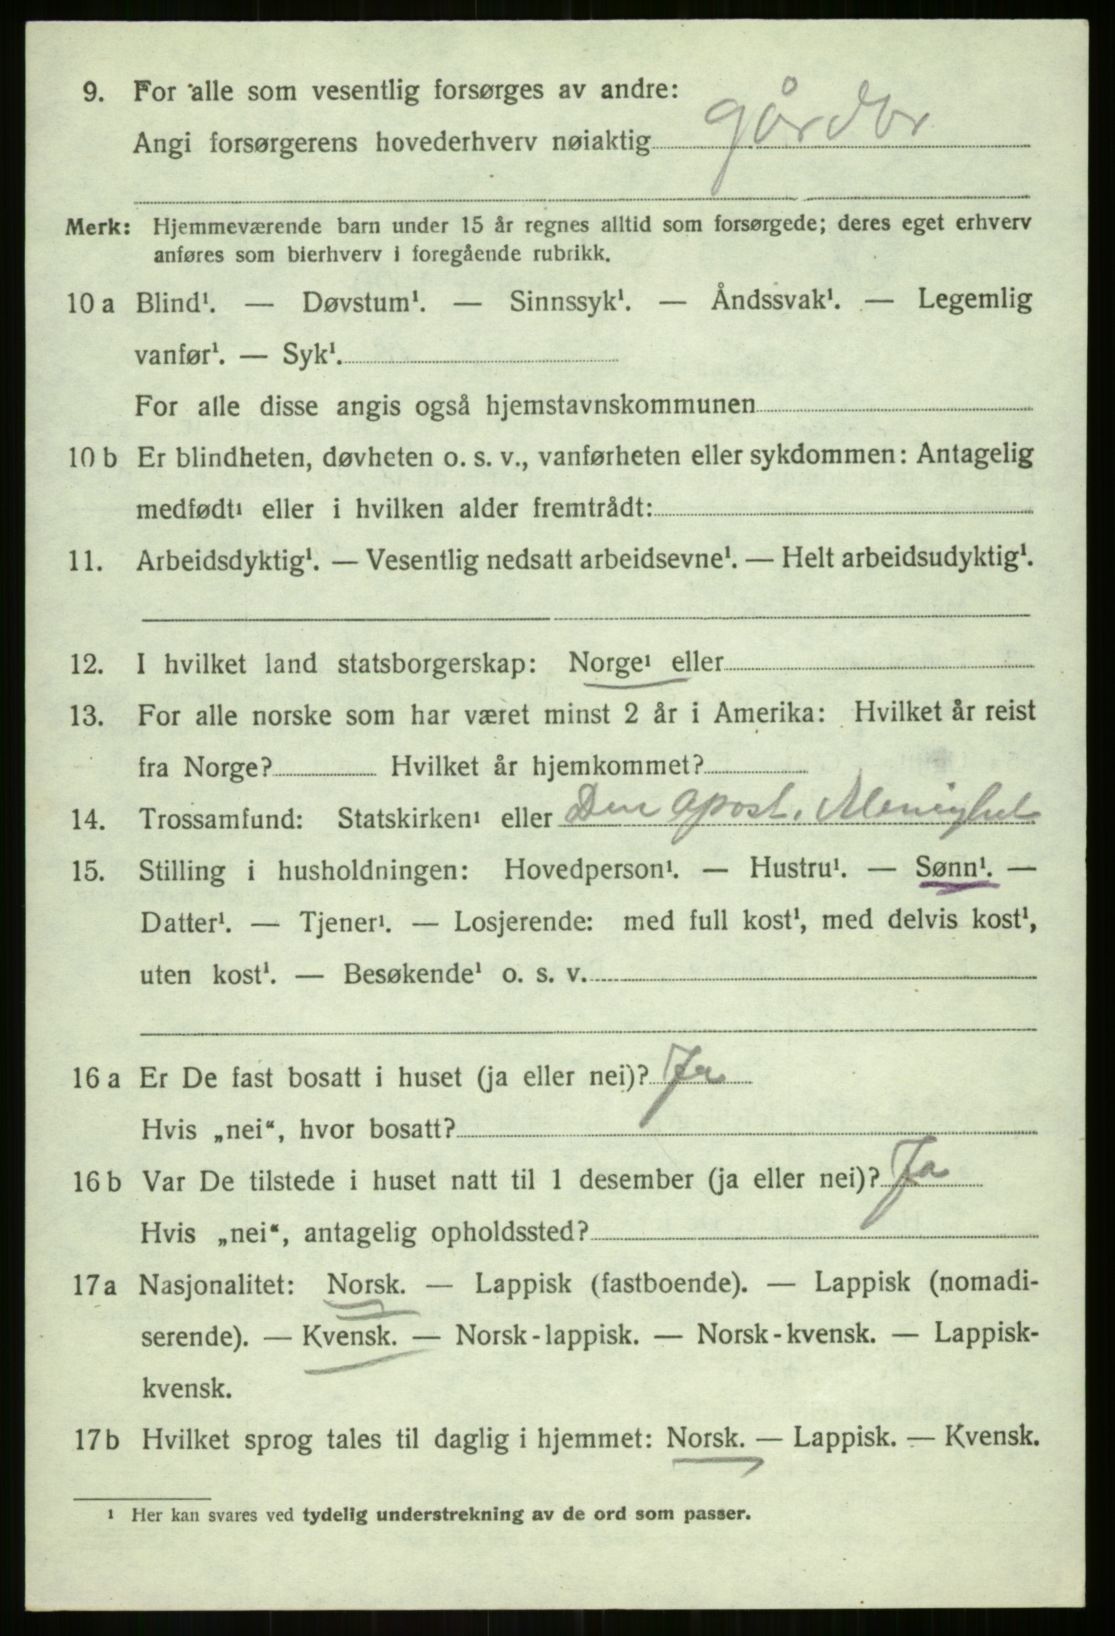 9. For alle som vesentlig forsørges av andre:
Angi forsørgerens hovederhverv nøiaktig gårdbr
Merk: Hjemmeværende barn under 15 år regnes alltid som forsørgede; deres eget erhverv
anføres som bierhverv i foregående rubrikk.
10 a Blind¹. — Døvstum¹. — Sinnssyk¹. — Åndssvak¹. — Legemlig
vanfør¹. — Syk¹.
For alle disse angis også hjemstavnskommunen
10 b Er blindheten, døvheten o. s. v., vanførheten eller sykdommen: Antagelig
medfødt¹ eller i hvilken alder fremtrådt:
11. Arbeidsdyktig¹. — Vesentlig nedsatt arbeidsevne¹. — Helt arbeidsudyktig¹.
12. I hvilket land statsborgerskap: Norge¹ eller
13. For alle norske som har været minst 2 år i Amerika: Hvilket år reist
fra Norge? Hvilket år hjemkommet?
14. Trossamfund: Statskirken¹ eller Den apost. Menighet
15. Stilling i husholdningen: Hovedperson¹. — Hustru¹. — Sønn¹. —
Datter¹. — Tjener¹. — Losjerende: med full kost¹, med delvis kost¹,
uten kost¹. — Besøkende¹ o. s. v.
16 a Er De fast bosatt i huset (ja eller nei)? Ja
Hvis „nei“, hvor bosatt?
16 b Var De tilstede i huset natt til 1 desember (ja eller nei)? Ja
Hvis „nei“, antagelig opholdssted?
17 a Nasjonalitet: Norsk. — Lappisk (fastboende). — Lappisk (nomadi-
serende). — Kvensk. — Norsk-lappisk. — Norsk-kvensk. — Lappisk-
kvensk.
17 b Hvilket sprog tales til daglig i hjemmet: Norsk. — Lappisk. — Kvensk.
¹ Her kan svares ved tydelig understrekning av de ord som passer.